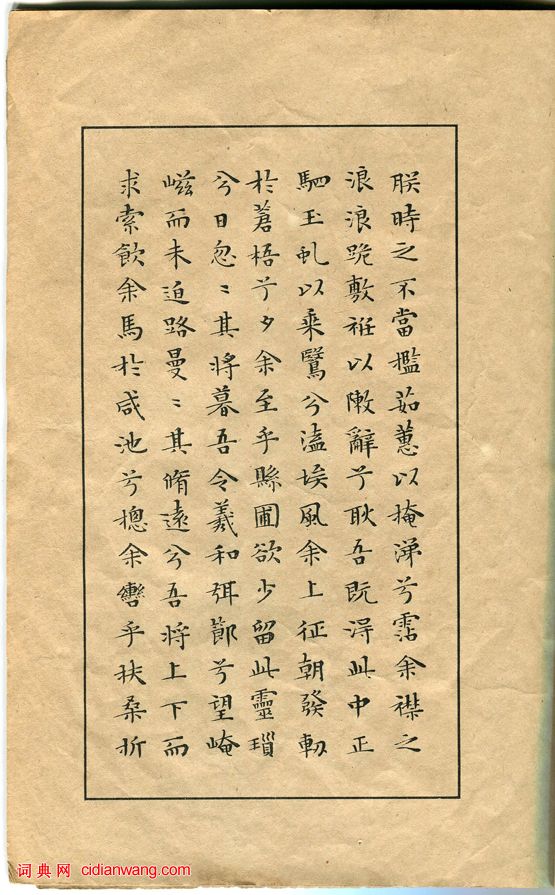 朕時之不當檻茹蕙以掩涕兮霑余襟之
浪浪跪敷衽以陳辭兮耿吾既得此中正
駟玉虬以乘鷖兮溘埃風余上征朝發軔
於蒼梧兮夕余至乎縣圃欲少留此靈瑣
兮日忽〻其將暮吾令羲和弭節兮望崦
嵫而未迫路曼〻其脩遠兮吾將上下而
求索飲余馬於咸池兮摠余轡乎扶桑折
词典网 cidianwang.com